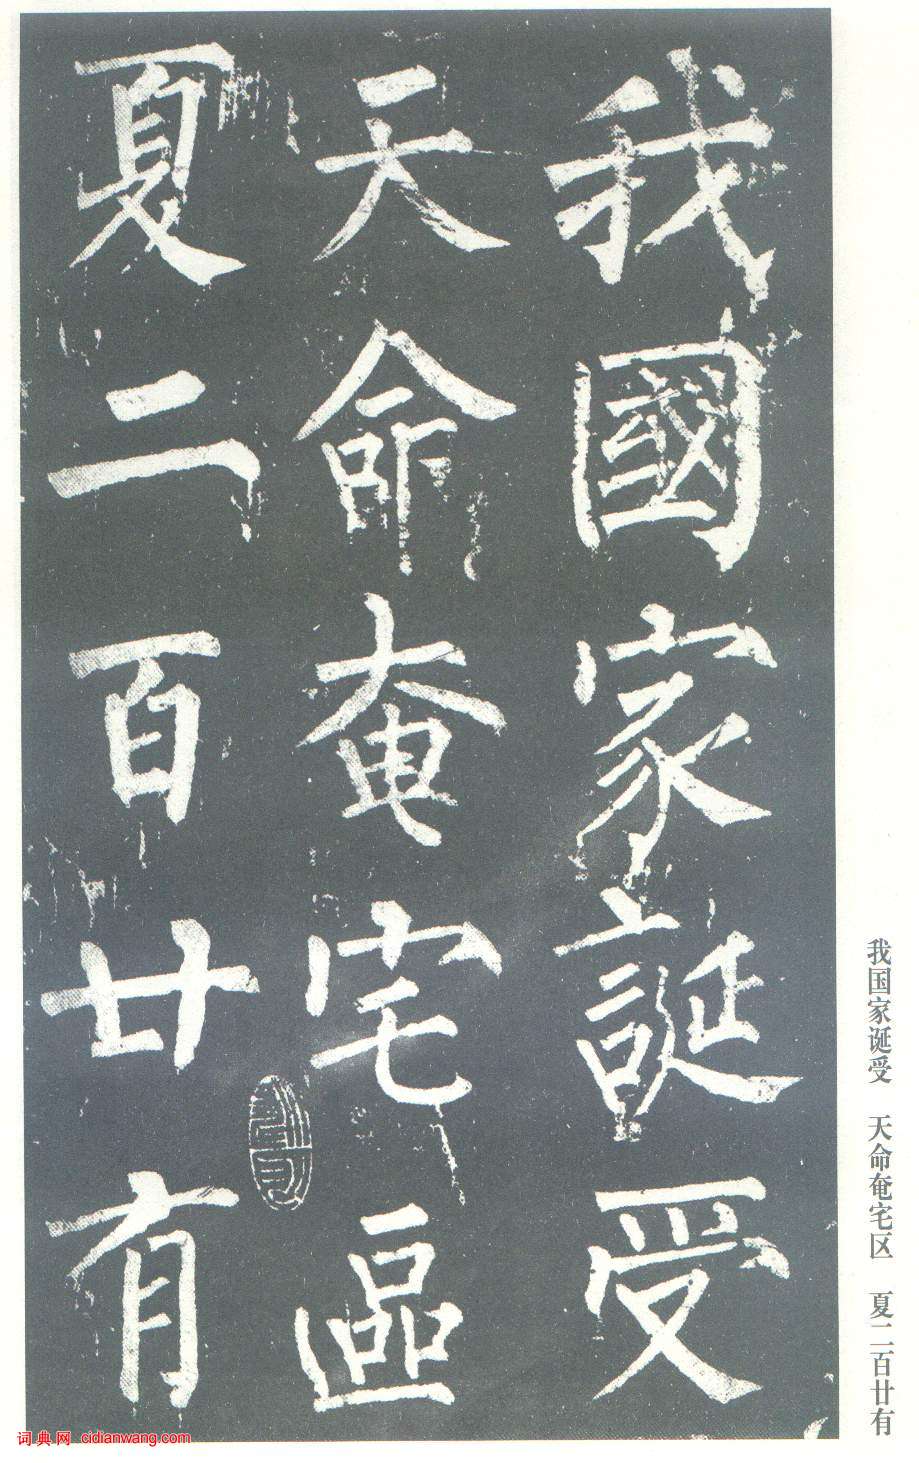 我國家誕受
天命奄宅區
夏二百廿有
我国家诞受　天命奄宅区　夏二百廿有
词典网 cidianwang.com